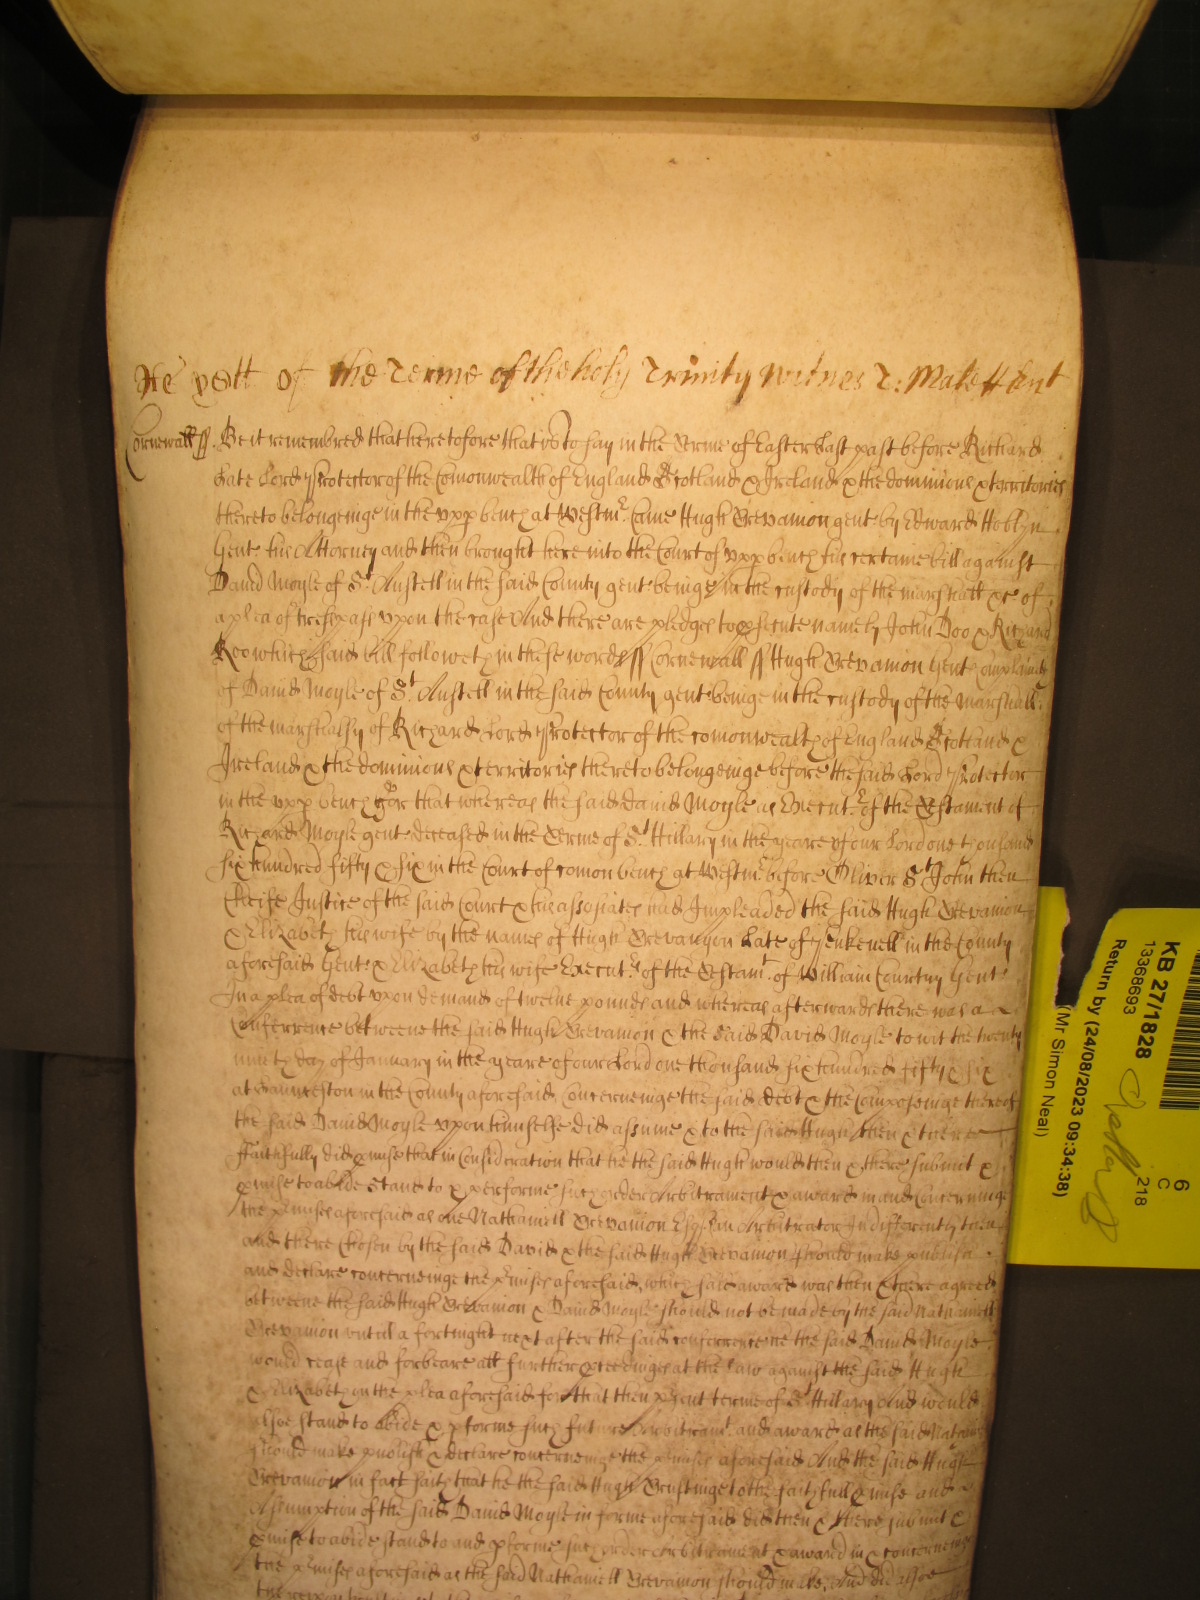 of the Terme of the holy Trinity Witnes T: Malett
Cornewall ss. Be it remembred that heretofore that is to say in the Terme of Easter last past before Richard
Late Lord Protector of the Comonwealth of England Scotland & Ireland & the dominions & territories
thereto belongeinge in the upp bench at Westmr. Came Hugh Trevanion gent by Edward Hoblyn
Gent his Attorney and then brought here into the Court of upp bench his certaine bill against
David Moyle of St. Austell in the said County gent beinge in the custody of the marshall &c of
a plea of trespass upon the case And there are pledges to psecute namely John Doo & Richard
Roo which said bill followeth in these words ss Cornewall ss Hugh Trevanion Gent complaineth
of David Moyle of St. Austell in the said County gent beinge in the custody of the Marshall
of the marshalsy of Richard Lord Protector of the comonwealth of England Scotland &
Ireland & the dominions & territories thereto belongeinge before the said Lord Protector
in the upp bench For that whereas the said David Moyle as Execut.r of the Testament of
Richard Moyle gent deceased in the Terme of St. Hillary in the yeare of our Lord one thousand
six hundred fifty & six in the Court of comon bench at Westmr. before Oliver St. John then
Cheife Justice of the said Court & his associates had Impleaded the said Hugh Trevanion
& Elizabeth his wife by the names of Hugh Trevanyon Late of in the County
aforesaid Gent & Elizabeth his wife Execut.rs of the Testamt. of William Courtny Gent
In a plea of debt upon demand of twelve pounds and whereas afterwards there was a
Conferrence betweene the said Hugh Trevanion & the said David Moyle to wit the twenty
ninth day of January in the yeare of our Lord one thousand six hundred fifty & six
at Launceston in the County aforesaid Concerneinge the said debt & the Composeinge thereof
the said David Moyle upon himselfe did assume & to the said Hugh then & there
ffaithfully did pmise that in Consideration that he the said Hugh would then & there submit &
pmise to abide stand to & pforme such order Arbitrament & award in and Concerninge
the pmises aforesaid as one Nathaniell Trevanion Esqr. an Arbitrator Indifferently then
and there Chosen by the said David & the said Hugh Trevanion should make publish
and declare concerneinge the pmises aforesaid, which said award was then & there agreed
betweene the said Hugh Trevanion & David Moyle should not be made by the said Nathaniell
Trevanion untill a fortnight next after the said conferrence he the said David Moyle
would cease and forbeare all further pceedinges at the Law against the said Hugh
& Elizabeth in the plea aforesaid for that then psent terme of St. Hillary And would
alsoe stand to abide & pforme such future Arbitramt. and award as the said
should make publish & declare concerneinge the pmises aforesaid And the said Hugh
Trevanion in fact saith that he the said Hugh Trustinge to the faithfull pmise and
Assumption of the said David Moyle in forme aforesaid did then & there submit &
pmise to abide stand to and pforme such order Arbitrament & award in & concerneinge
the pmises aforesaid as the said Nathaniell Trevanion should make, And did alsoe
KB 27/1828
13368693
Return by (24/08/2023 09:34:38)
(Mr Simon Neal)
6
C
218